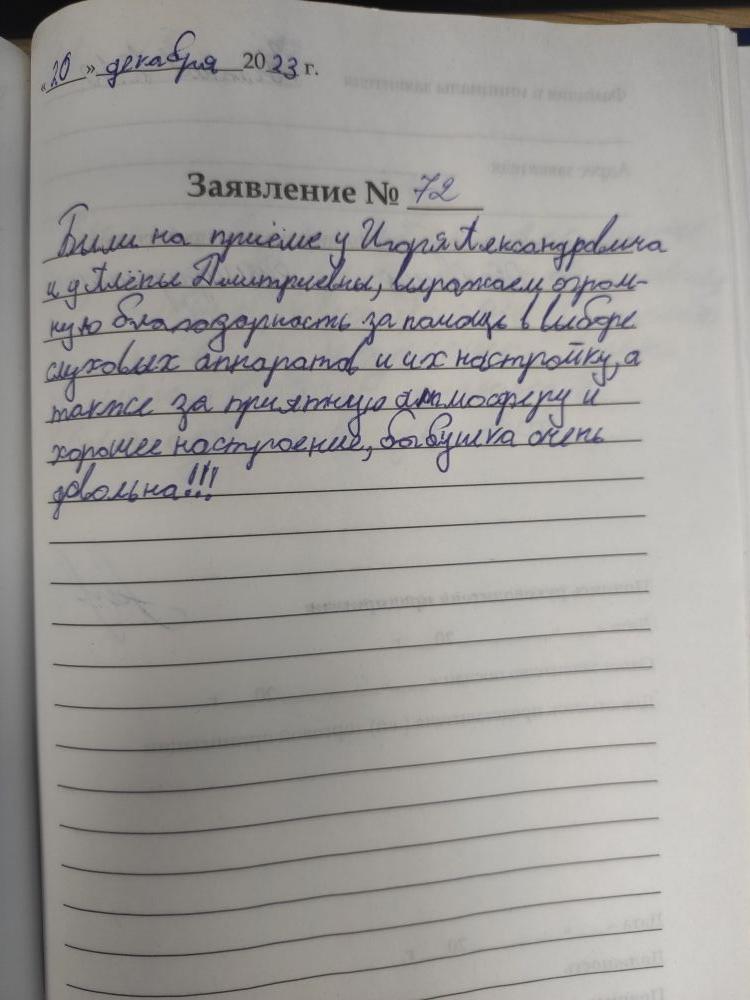 «20» декабря 2023 г.
Заявление № 72
Были на приёме у Игоря Александровича
и у Алёны Дмитриевны, выражаем огром-
ную благодарность за помощь в выборе
слуховых аппаратов и их настройку, а
также за приятную атмосферу и
хорошее настроение, бабушка очень
довольна!!!